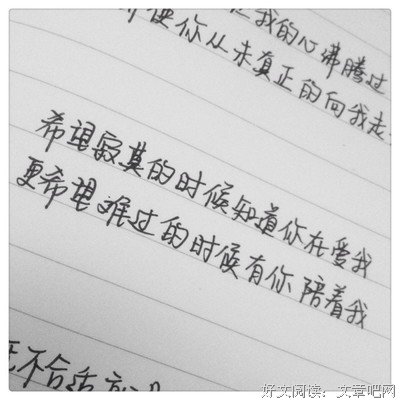 我的心沸腾过
使你从未真正的向我走
希望寂寞的时候知道你在爱我
更希望难过的时候有你陪着我
不合适
好文阅读：文章吧网